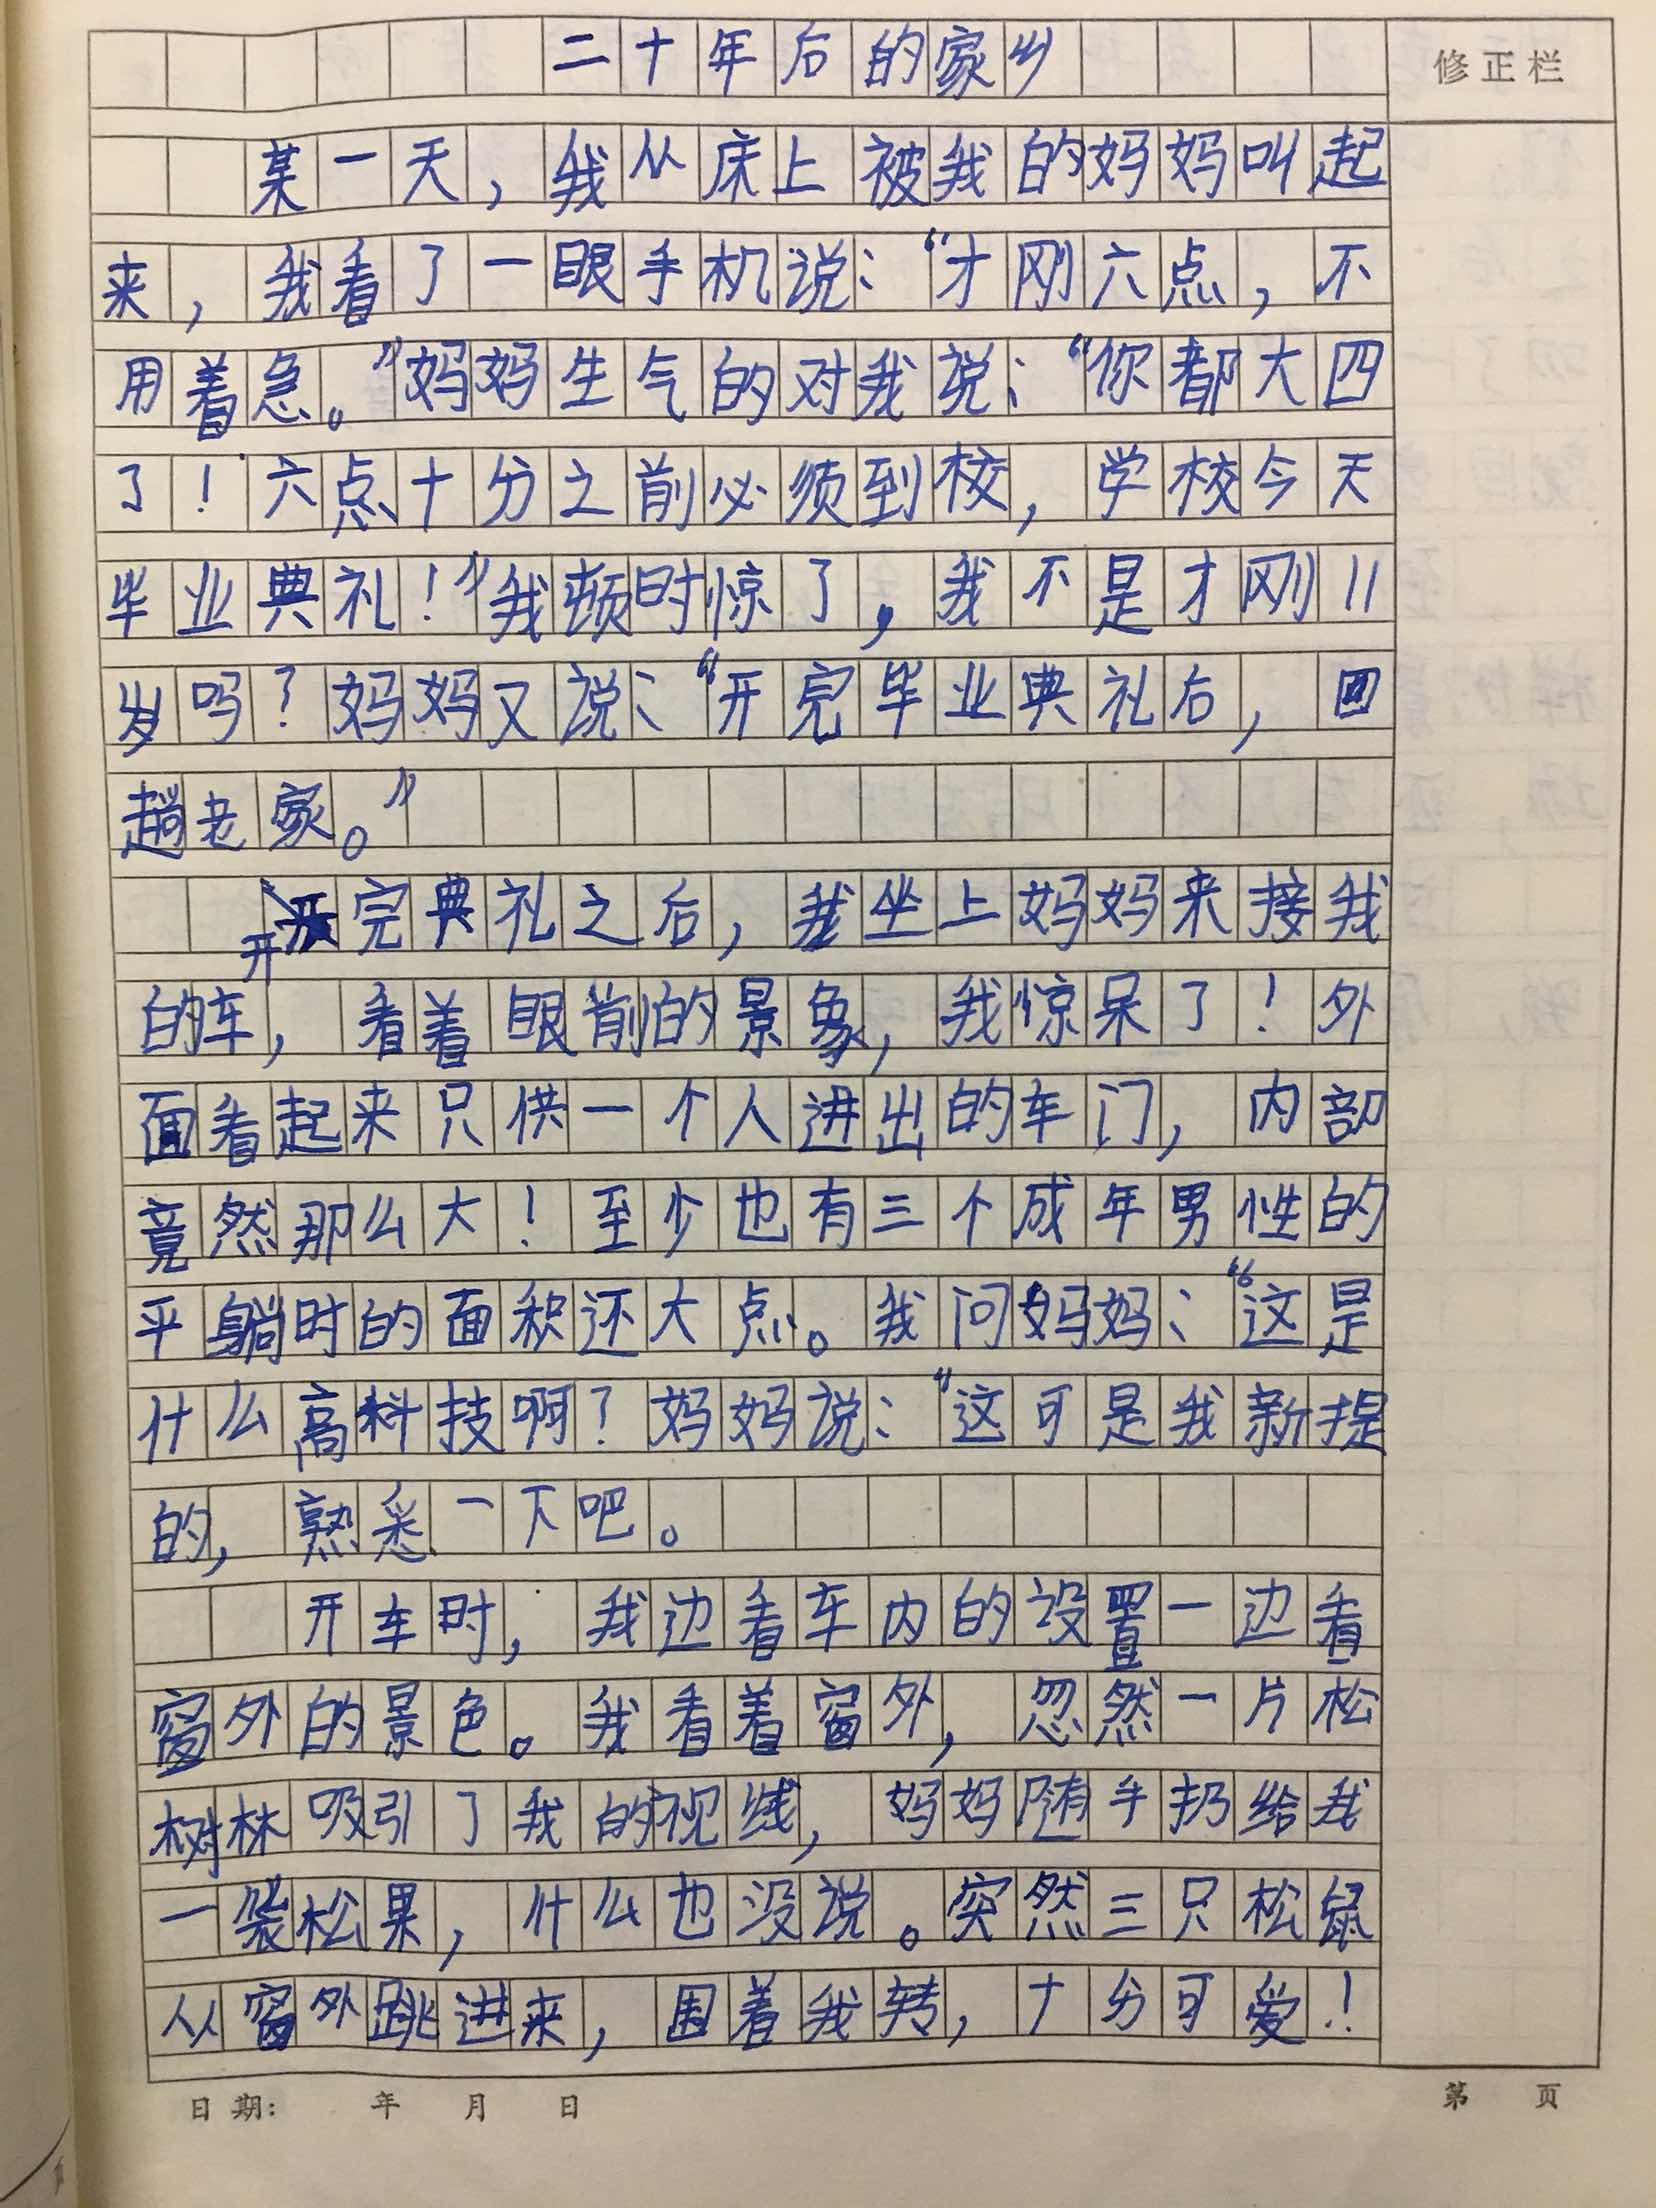 二十年后的家乡
修正栏
某一天，我从床上被我的妈妈叫起
来，我看了一眼手机说：“才刚六点，不
用着急。”妈妈生气的对我说：“你都大四
了！六点十分之前必须到校，学校今天
毕业典礼！”我顿时惊了，我不是才刚11
岁吗？妈妈又说：“开完毕业典礼后，回
趟老家。”
开完典礼之后，我坐上妈妈来接我
的车，看着眼前的景象，我惊呆了！外
面看起来只供一个人进出的车门，内部
竟然那么大！至少也有三个成年男性的
平躺时的面积还大点。我问妈妈：“这是
什么高科技啊？妈妈说：“这可是我新提
的，熟悉一下吧。
开车时，我边看车内的设置一边看
窗外的景色。我看着窗外，忽然一片松
树林吸引了我的视线，妈妈随手扔给我
一袋松果，什么也没说。突然三只松鼠
从窗外跳进来，围着我转，十分可爱！
日期： 年 月 日
第 页